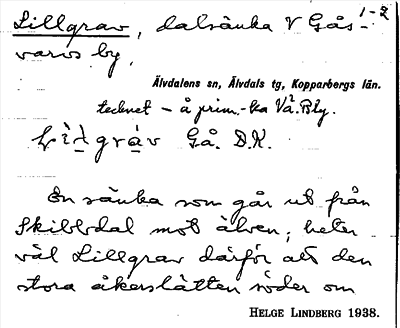 Lillgrav, dalsänka V Gås- 1-2
varvs by.
Älvdalens sn, Älvdals tg, Kopparbergs län.
tecknet – å prim.-ka Vå. Bly.
Gå. D.K.
En sänka som går ut från
Skibbdal mot älven; heter
väl Lillgrav därför att den
stora åkerslätten söder om
HELGE LINDBERG 1938.